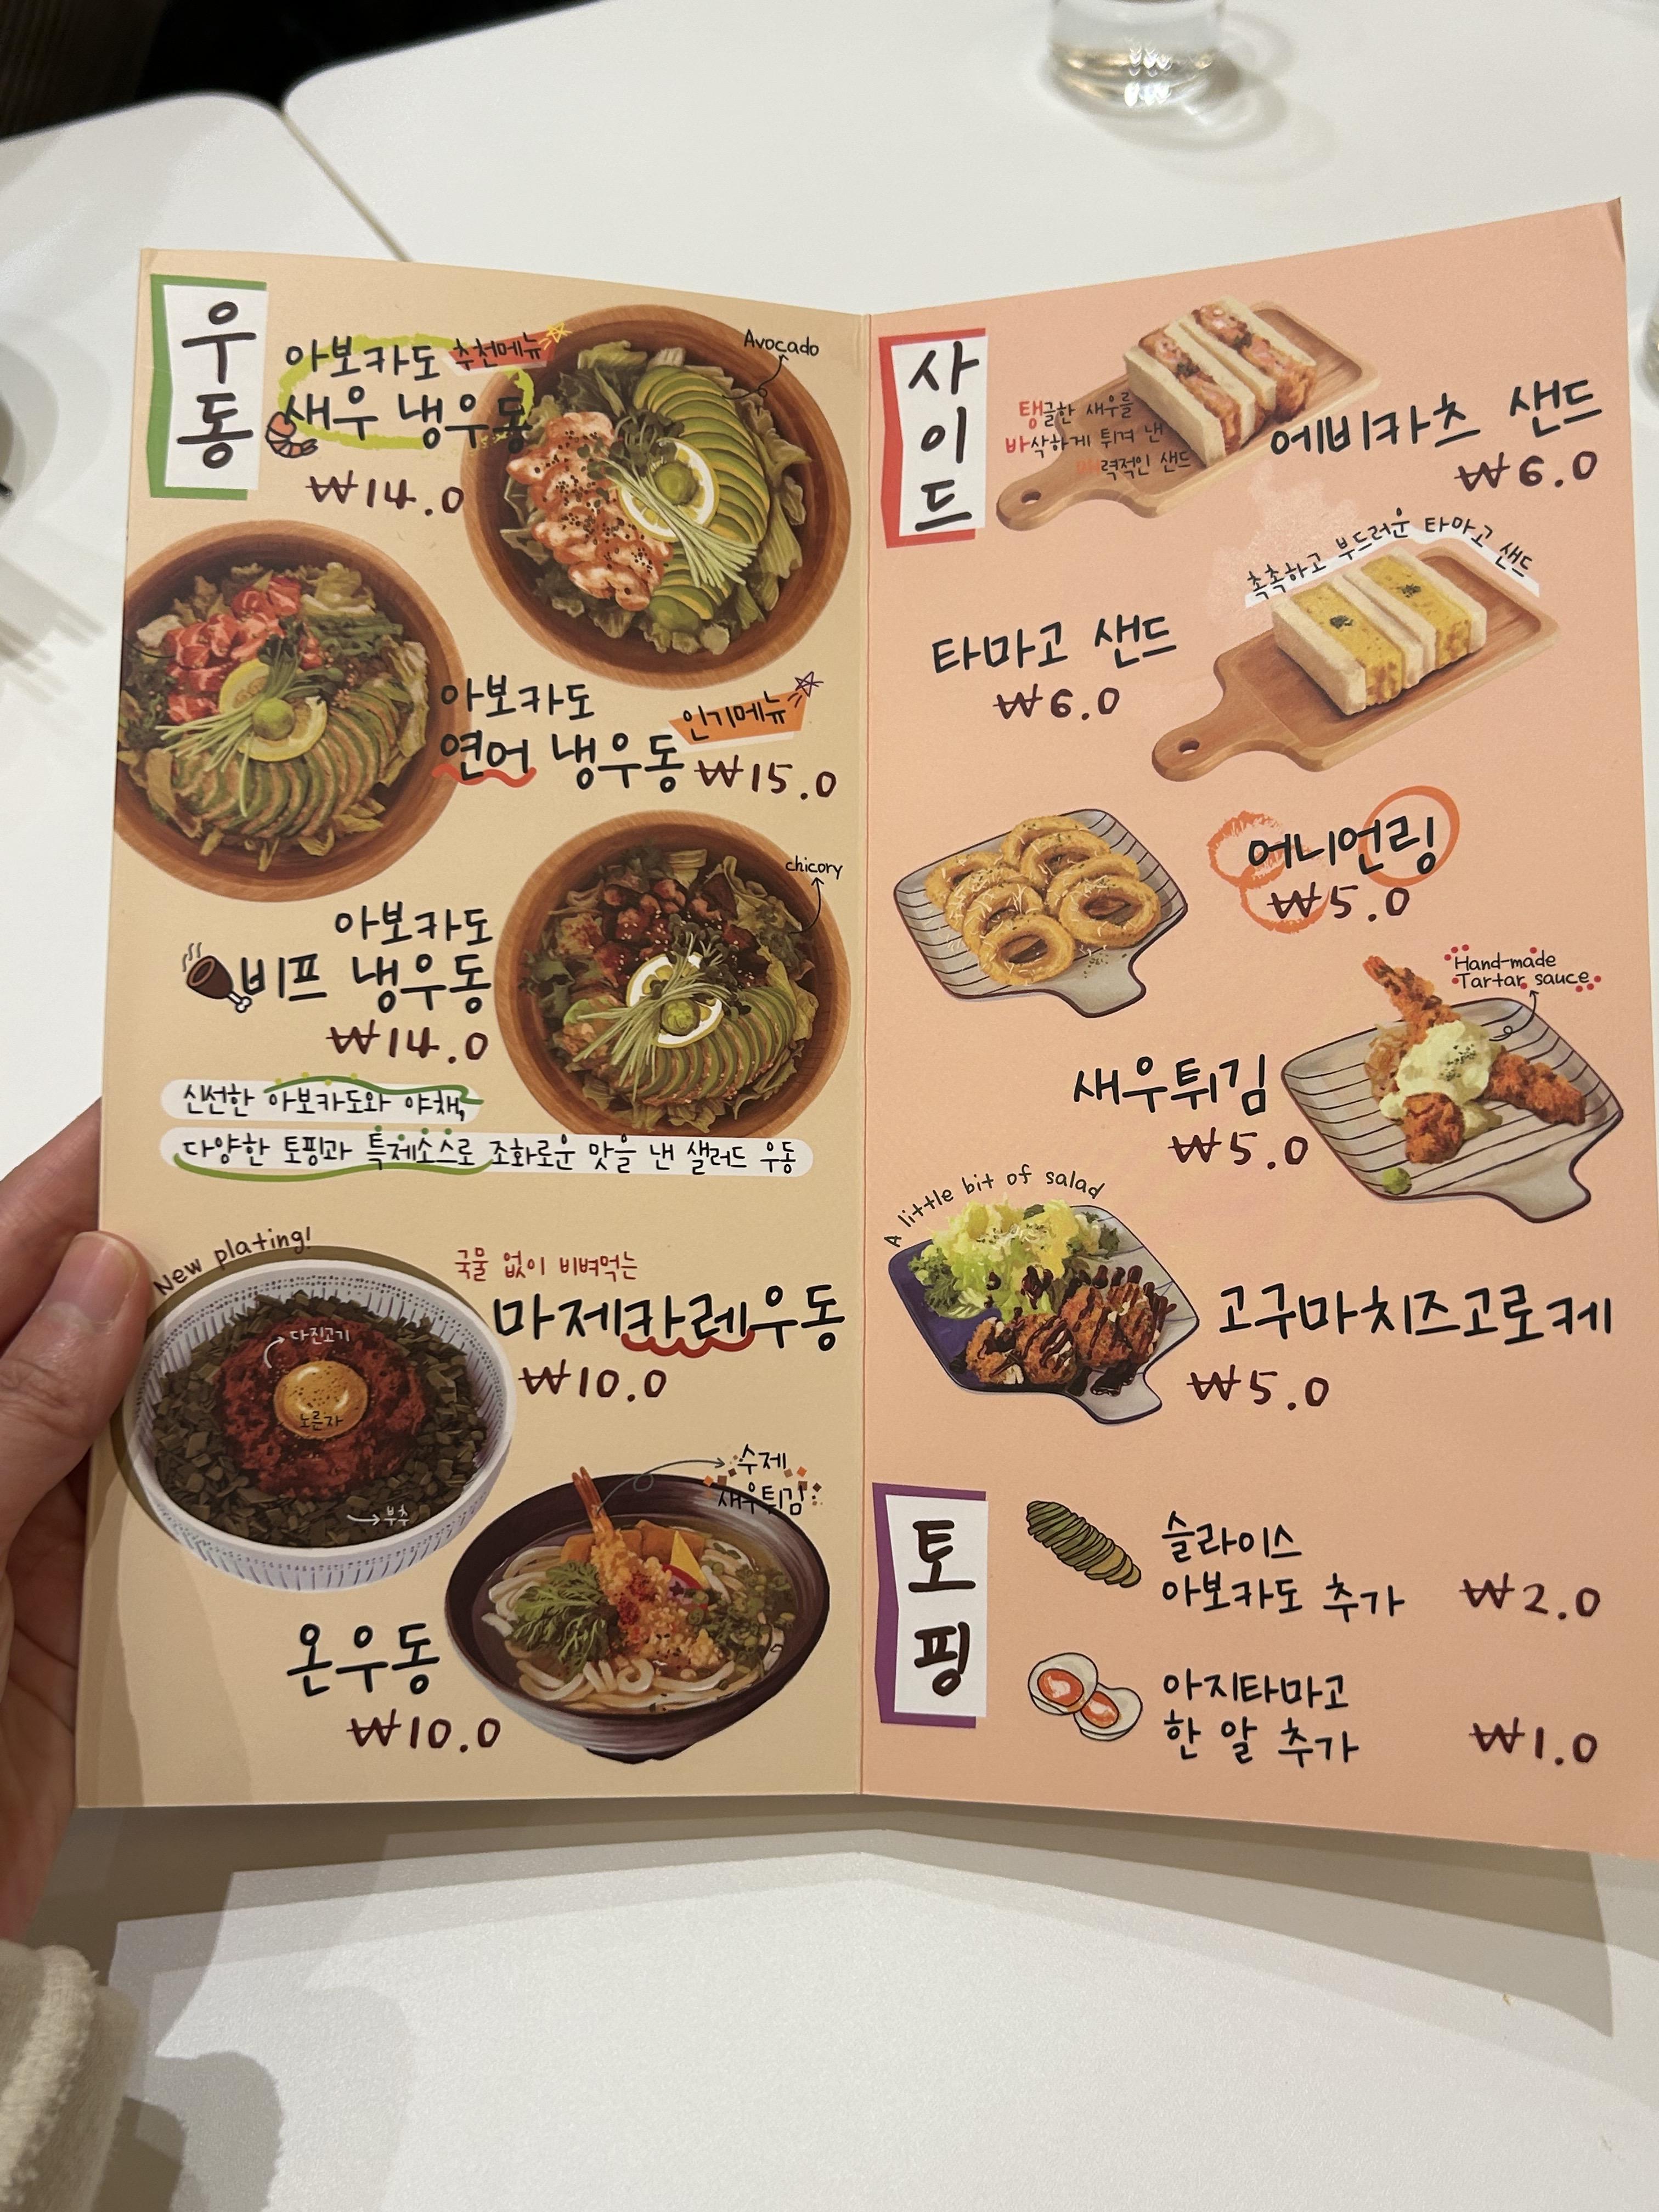 우동
아보카도 추천메뉴
새우 냉우동
₩14.0
Avocado
아보카도
연어 냉우동
인기메뉴
₩15.0
아보카도
비프 냉우동
₩14.0
chicory
신선한 아보카도와 야채,
다양한 토핑과 특제소스로 조화로운 맛을 낸 샐러드 우동
New plating!
다진고기
노른자
부추
국물 없이 비벼먹는
마제카레우동
₩10.0
수제
새우튀김
온우동
₩10.0
사이드
탱글한 새우를
바삭하게 튀겨 낸
매력적인 샌드
에비카츠 샌드
₩6.0
촉촉하고 부드러운 타마고 샌드
타마고 샌드
₩6.0
어니언링
₩5.0
Hand-made
Tartar sauce
새우튀김
₩5.0
A little bit of salad
고구마치즈고로케
₩5.0
토핑
슬라이스
아보카도 추가 ₩2.0
아지타마고
한 알 추가 ₩1.0